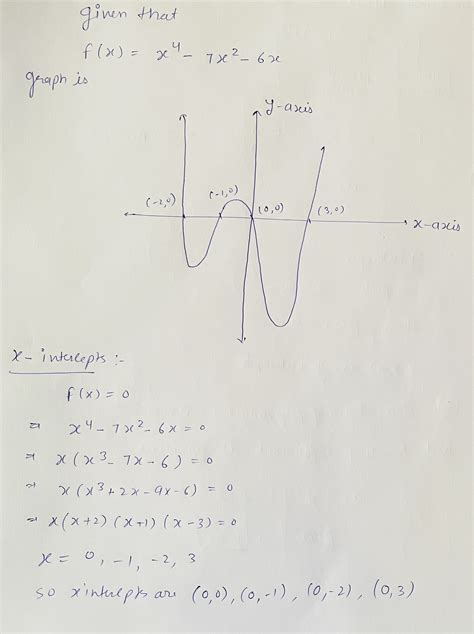 given that
f(x) = x⁴ - 7x² - 6x
graph is
y-axis
(-2,0)
(-1,0)
(0,0)
(3,0)
x-axis
x-intercepts :-
f(x) = 0
⇒ x⁴ - 7x² - 6x = 0
⇒ x(x³ - 7x - 6) = 0
⇒ x(x³ + 2x - 9x - 6) = 0
⇒ x(x+2)(x+1)(x-3) = 0
x = 0, -1, -2, 3
so x intercepts are (0,0), (0,-1), (0,-2), (0,3)